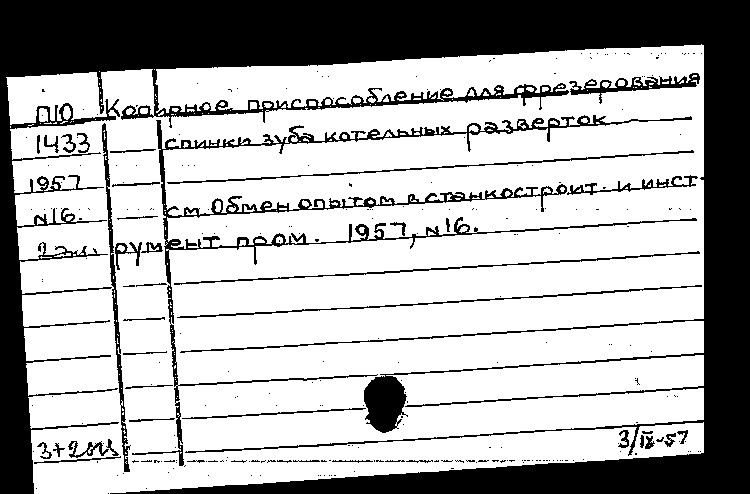 П10 Копирное приспособление для фрезерования
1433 спинки зуба котельных разверток
1957
N16. см. Обмен опытом в станкостроит. и инст-
2 экз. румент пром. 1957, N16.
3/IX-57